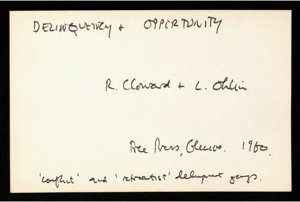 DELINQUENCY + OPPERTUNITY
R. Cloward + L. Ohlin
Free Press, Glencoe. 1960.
'conflict' and 'retreatist' delinquent gangs.